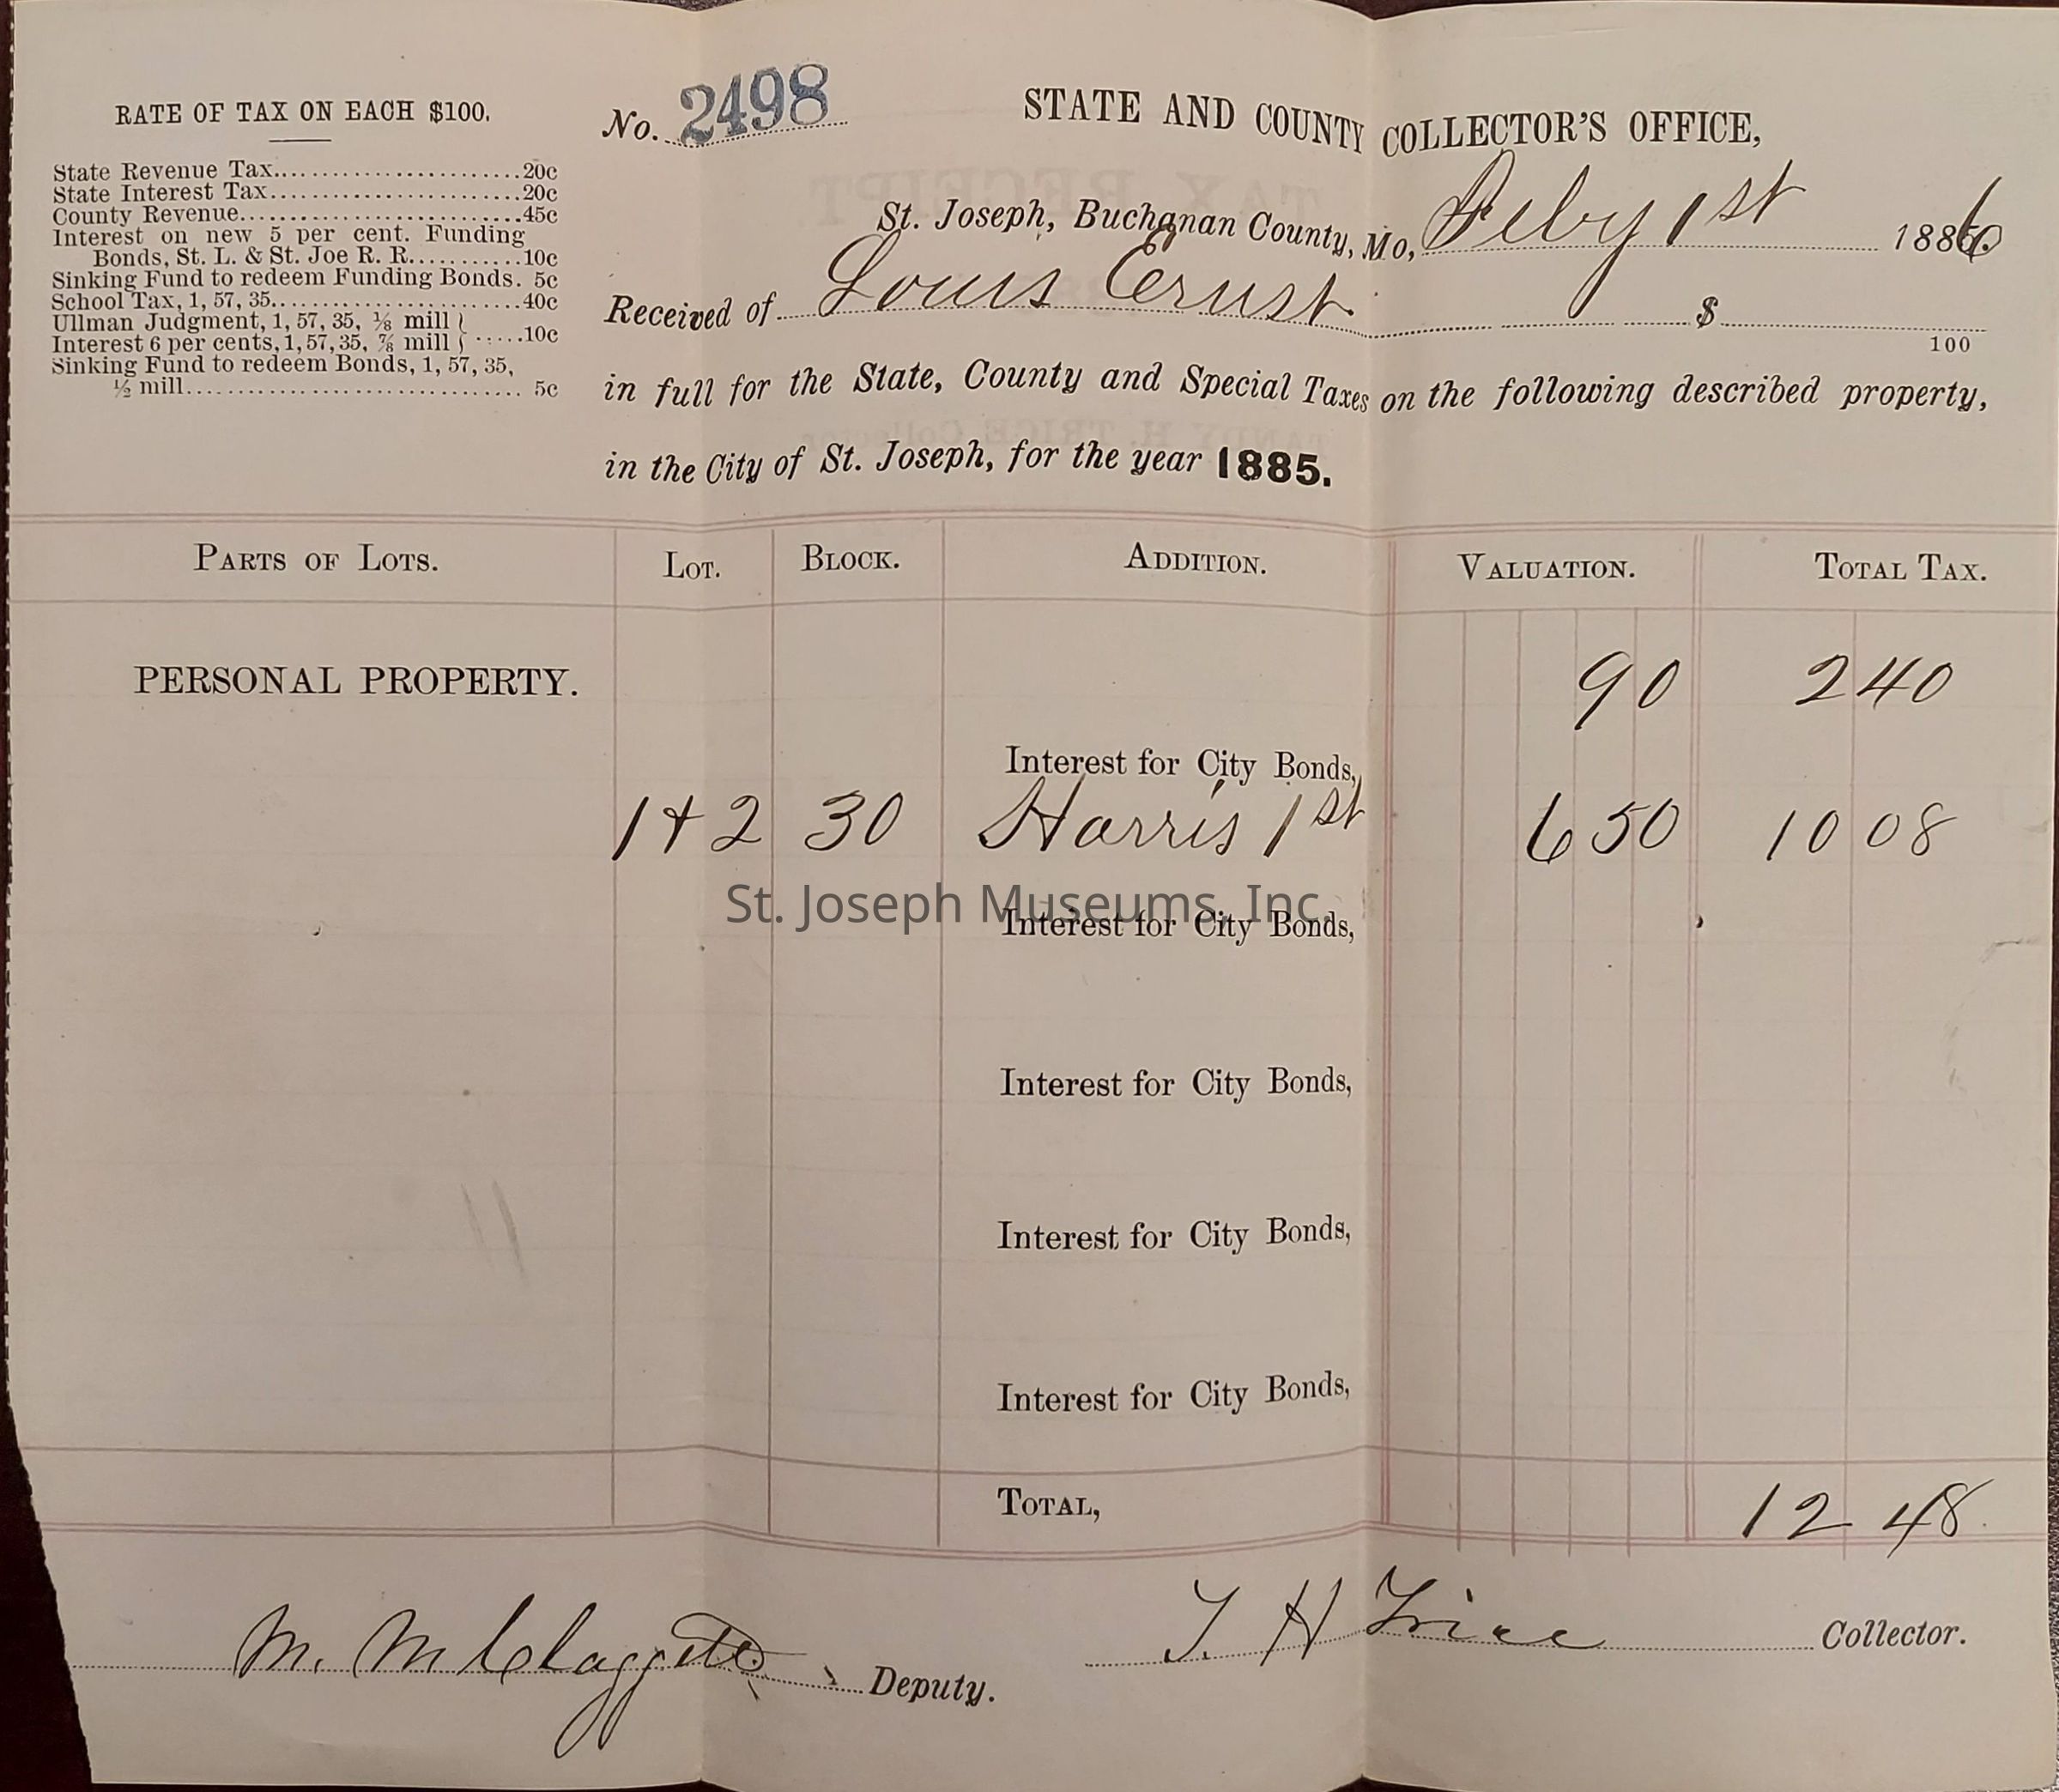 RATE OF TAX ON EACH $100.
State Revenue Tax........................20c
State Interest Tax........................20c
County Revenue...........................45c
Interest on new 5 per cent. Funding
Bonds, St. L. & St. Joe R. R...........10c
Sinking Fund to redeem Funding Bonds. 5c
School Tax, 1, 57, 35........................40c
Ullman Judgment, 1, 57, 35, ⅛ mill }
Interest 6 per cents, 1, 57, 35, ⅞ mill } .....10c
Sinking Fund to redeem Bonds, 1, 57, 35,
½ mill................................ 5c
No. 2498
STATE AND COUNTY COLLECTOR'S OFFICE,
St. Joseph, Buchanan County, Mo, Feby 1st 1886
Received of Louis Ernst $
100
in full for the State, County and Special Taxes on the following described property,
in the City of St. Joseph, for the year 1885.
PARTS OF LOTS. LOT. BLOCK. ADDITION. VALUATION. TOTAL TAX.
PERSONAL PROPERTY. 90 2 40
Interest for City Bonds,
1 + 2 30 Harris 1st 650 10 08
St. Joseph Museums, Inc.
Interest for City Bonds,
Interest for City Bonds,
Interest for City Bonds,
Interest for City Bonds,
TOTAL, 12 48
M. M Claggett Deputy.
T. H Trice Collector.